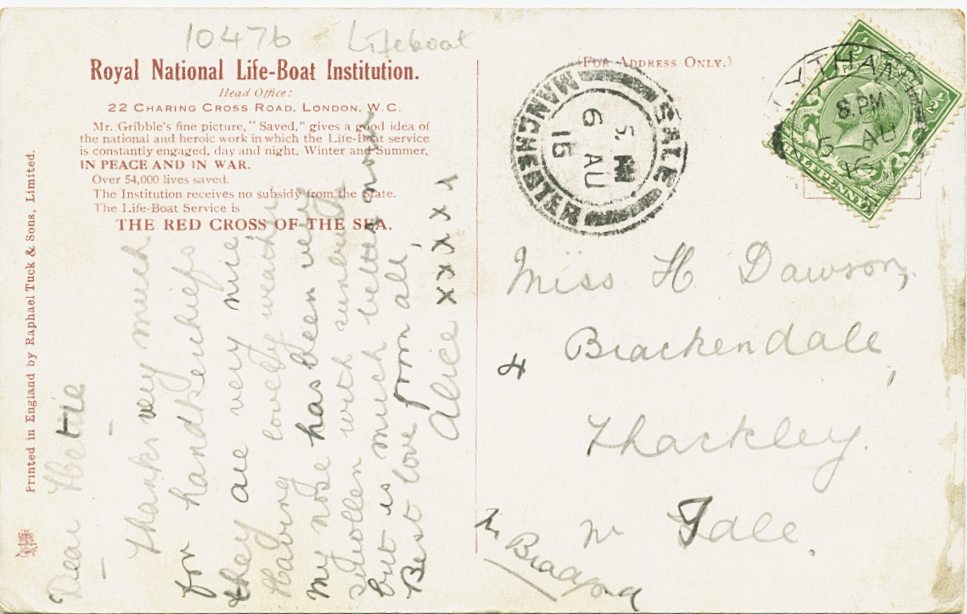 10476 - Lifeboat
Royal National Life-Boat Institution.
Head Office:
22 CHARING CROSS ROAD, LONDON, W.C.
Mr. Gribble's fine picture, "Saved," gives a good idea of
the national and heroic work in which the Life-Boat service
is constantly engaged, day and night, Winter and Summer,
IN PEACE AND IN WAR.
Over 54,000 lives saved.
The Institution receives no subsidy from the State.
The Life-Boat Service is
THE RED CROSS OF THE SEA.
Printed in England by Raphael Tuck & Sons, Limited.
Dear Hettie
Thanks very much
for handkerchiefs
they are very nice
Having lovely weather
my nose has been very
swollen with sunburn
but is much better now
Best love from all,
Alice xxxxx
(FOR ADDRESS ONLY.)
SALE
MANCHESTER
5
6 AU
16
LYTHAM
8. PM
5 AU
16
HALFPENNY
Miss H. Dawson,
4 Brackendale,
Thackley.
Nr Idle.
Nr Bradford